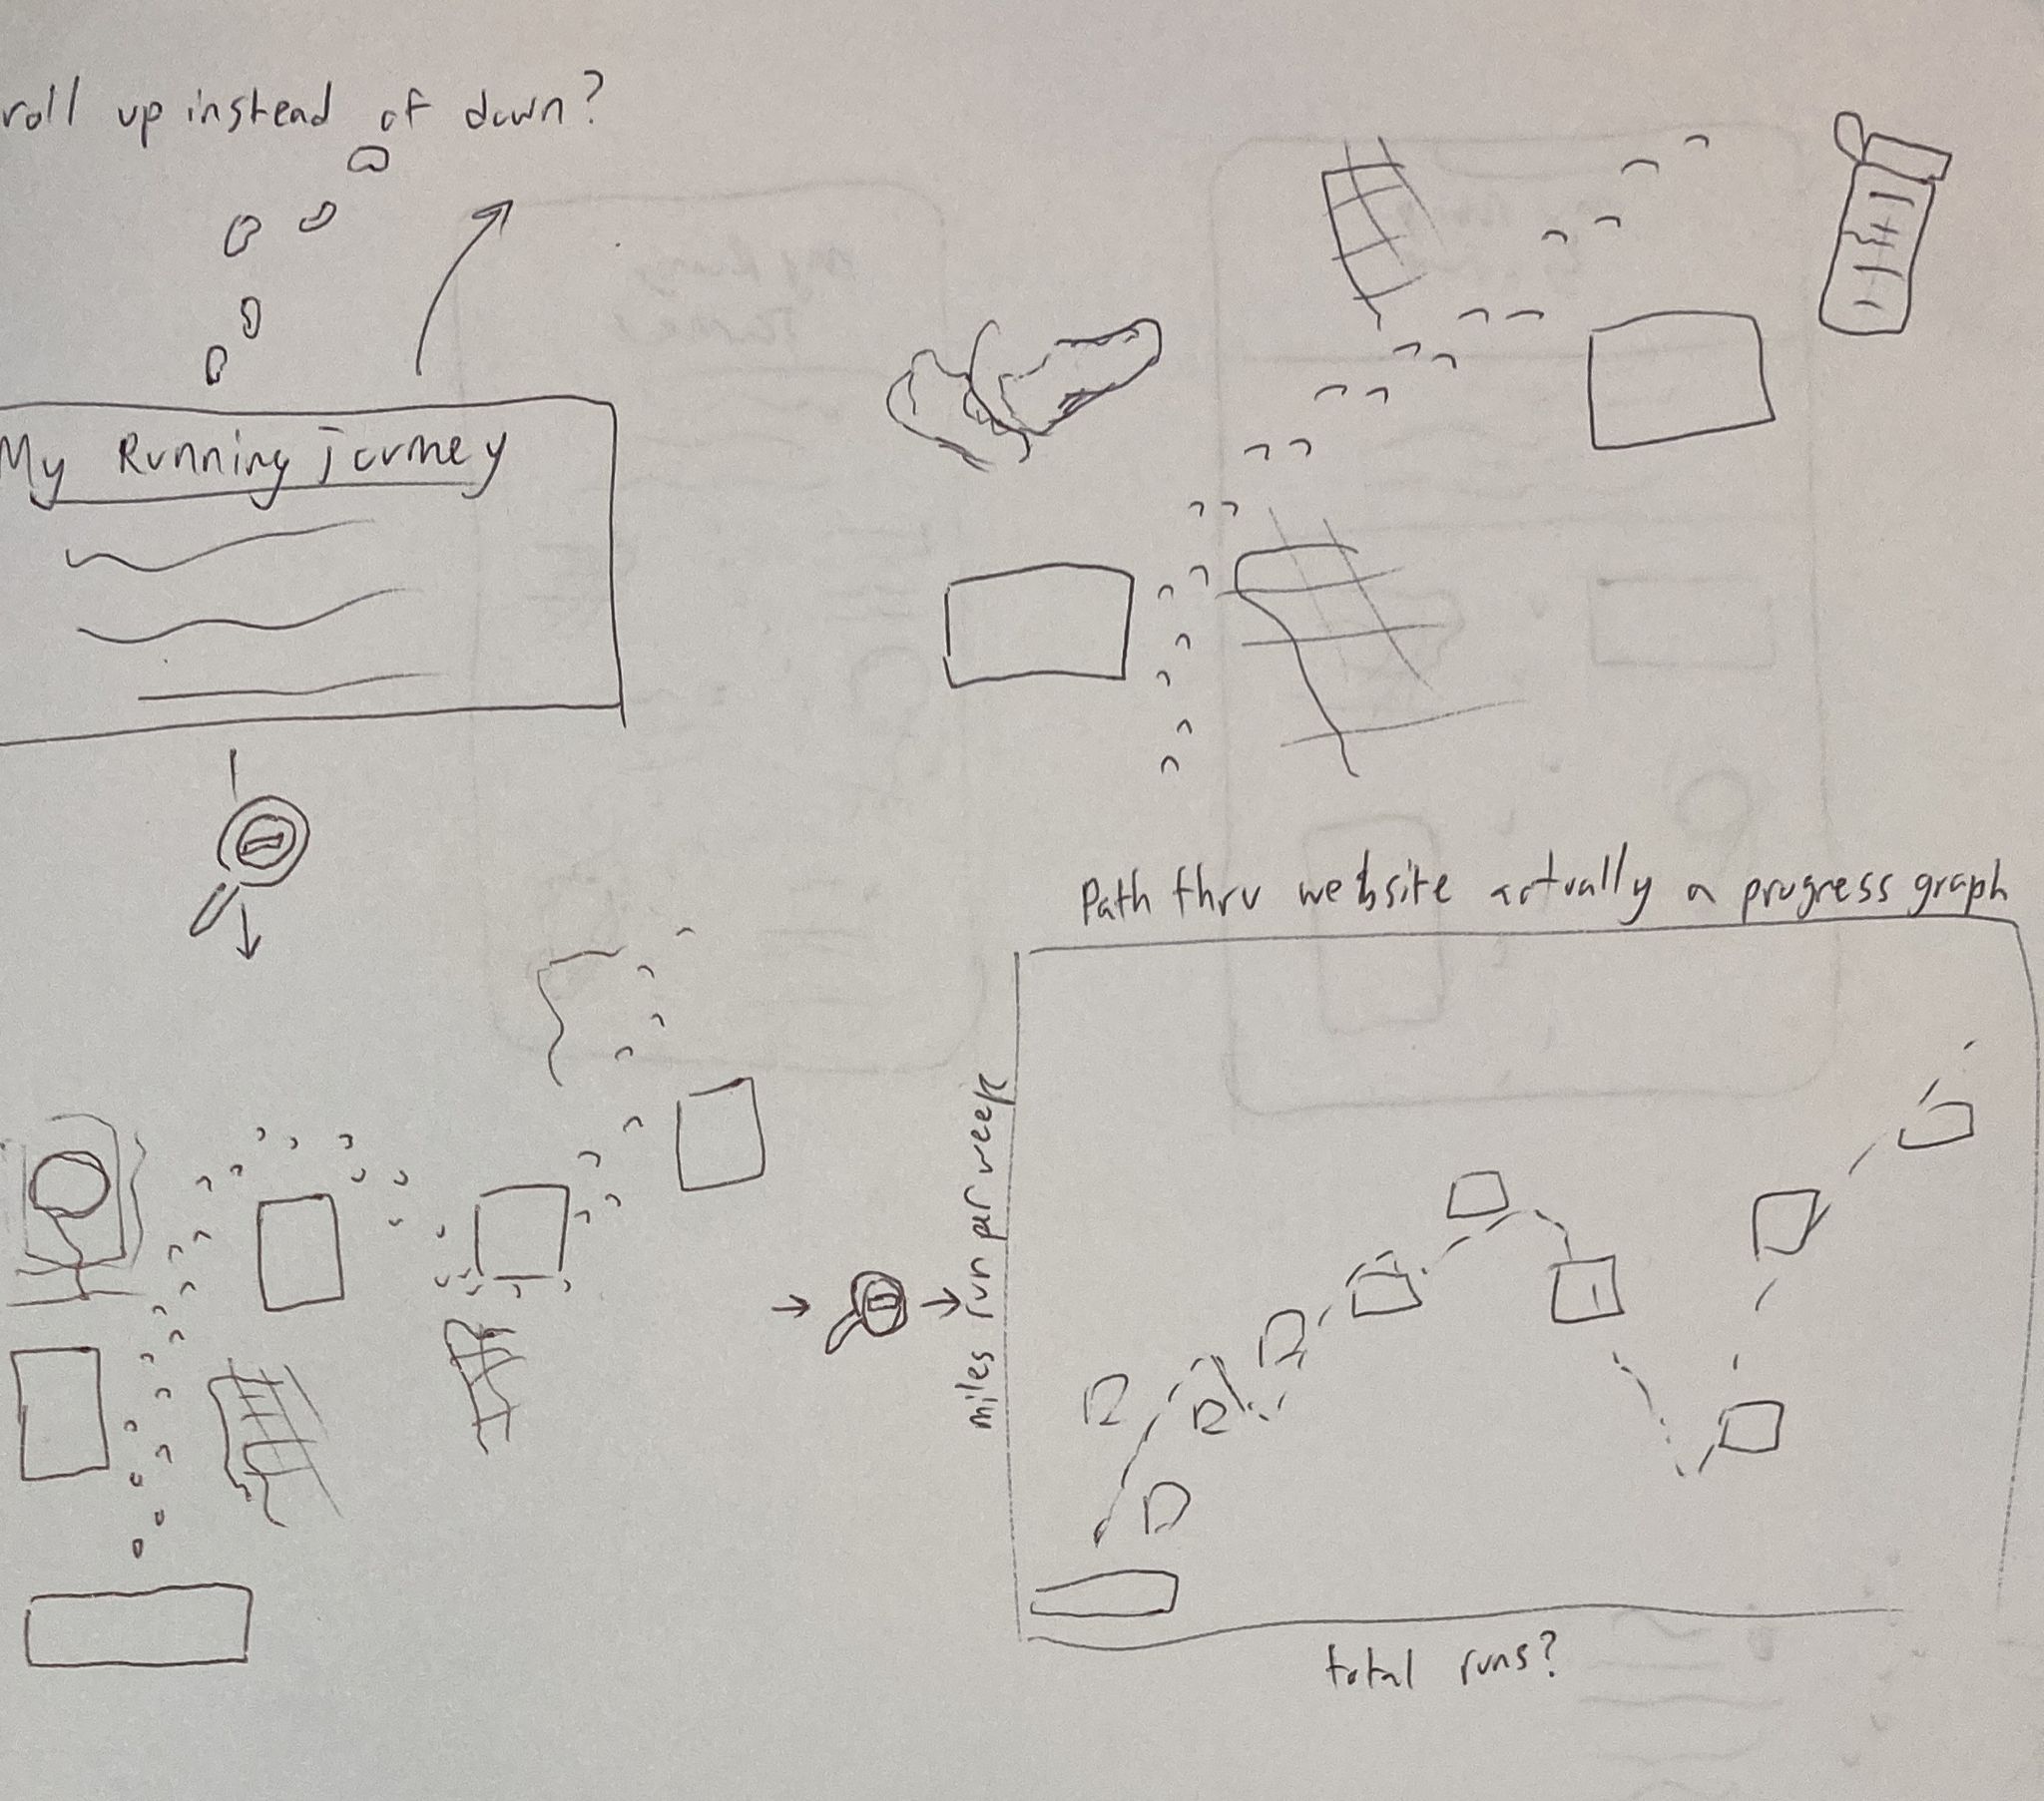 roll up instead of down?
My Running journey
Path thru website actually a progress graph
miles run per week
total runs?